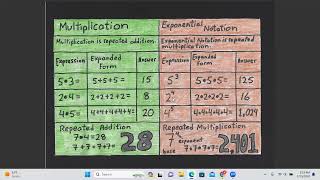 Multiplication
Multiplication is repeated addition.
Expression Expanded Form Answer
5*3= 5+5+5= 15
2*4= 2+2+2+2= 8
4*5= 4+4+4+4+4= 20
Repeated Addition
7*4=28
7+7+7+7=
28
Exponential Notation
Exponential Notation is repeated multiplication.
Expression Expanded Form Answer
5³ 5*5*5= 125
2⁴ 2*2*2*2= 16
4⁵ 4*4*4*4*4= 1,024
Repeated Multiplication
7⁴ exponent
base 7*7*7*7=
2,401
Search